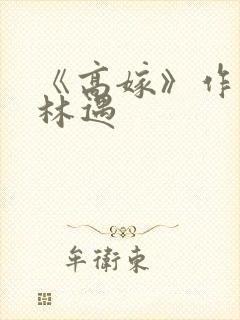 《高嫁》作
林遇
牟衛東